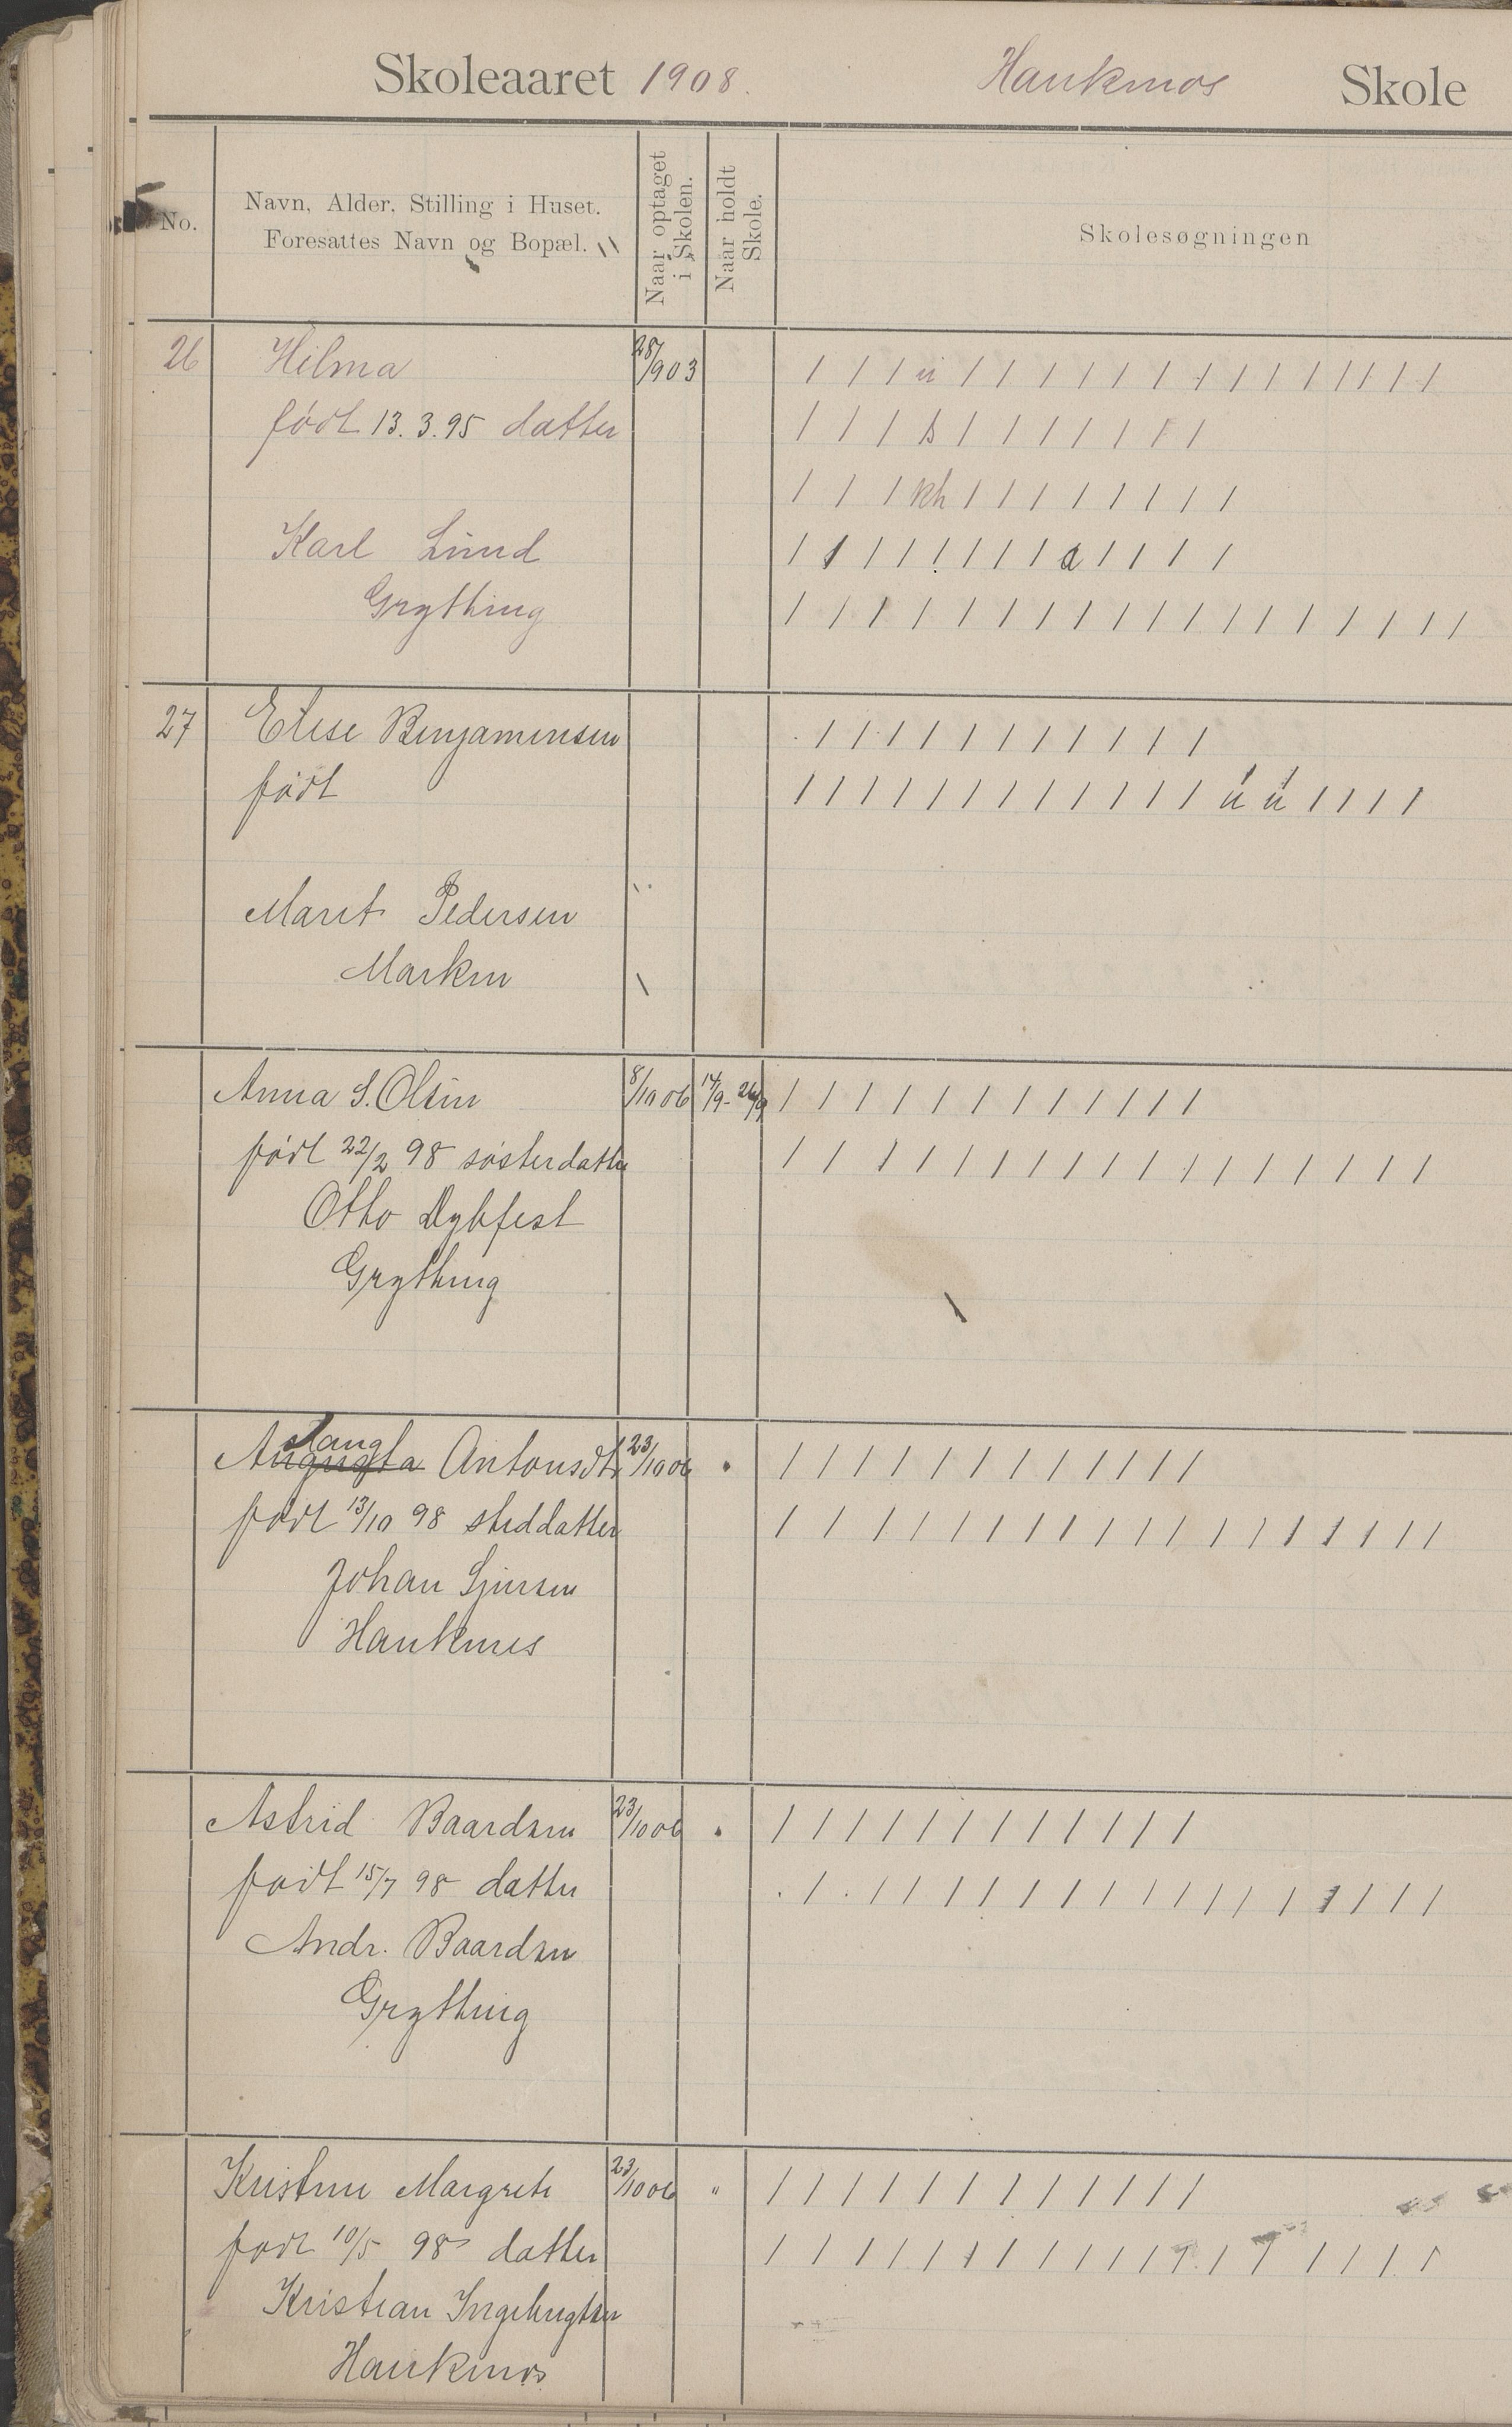 Skoleaaret 1908. Hauknæs Skole
No. Navn, Alder, Stilling i Huset. Foresattes Navn og Bopæl. Naar optaget i Skolen. Naar holdt Skole. Skolesøgningen
26 Hilma 28/903 / / / u / / / / / / / / / / / / / /
født 13.3.95 datter / / / s / / / / / / /
/ / / kh / / / / / / / /
Karl Lund / / / / / / / a / / / /
Grytting / / / / / / / / / / / / / / / / / /
27 Elise Benjaminsen / / / / / / / / / / /
født / / / / / / / / / / / / ú ú / / / /
Marit Pedersen
Marken
Anna S. Olsen 8/10 06 14/9 - 26/9 / / / / / / / / / / / /
født 22/2 98 søsterdatter / / / / / / / / / / / / / / / / /
Otto Dybfest
Grytting
Aslaug Antonsdtr 23/10 06 / / / / / / / / / / / /
født 13/10 98 steddatter / / / / / / / / / / / / / / / / / /
Johan Sjursen
Hauknes
Astrid Baardsen 23/10 06 / / / / / / / / / / / /
født 15/7 98 datter . / . / / / / / / / / / / / / / / / /
Andr. Baardsen
Grytting
Kristine Margrete 23/10 06 " / / / / / / / / / / / /
født 10/5 98 datter / / / / / / / / / / / / / / / / / /
Kristian Ingebrigtsen
Hauknæs